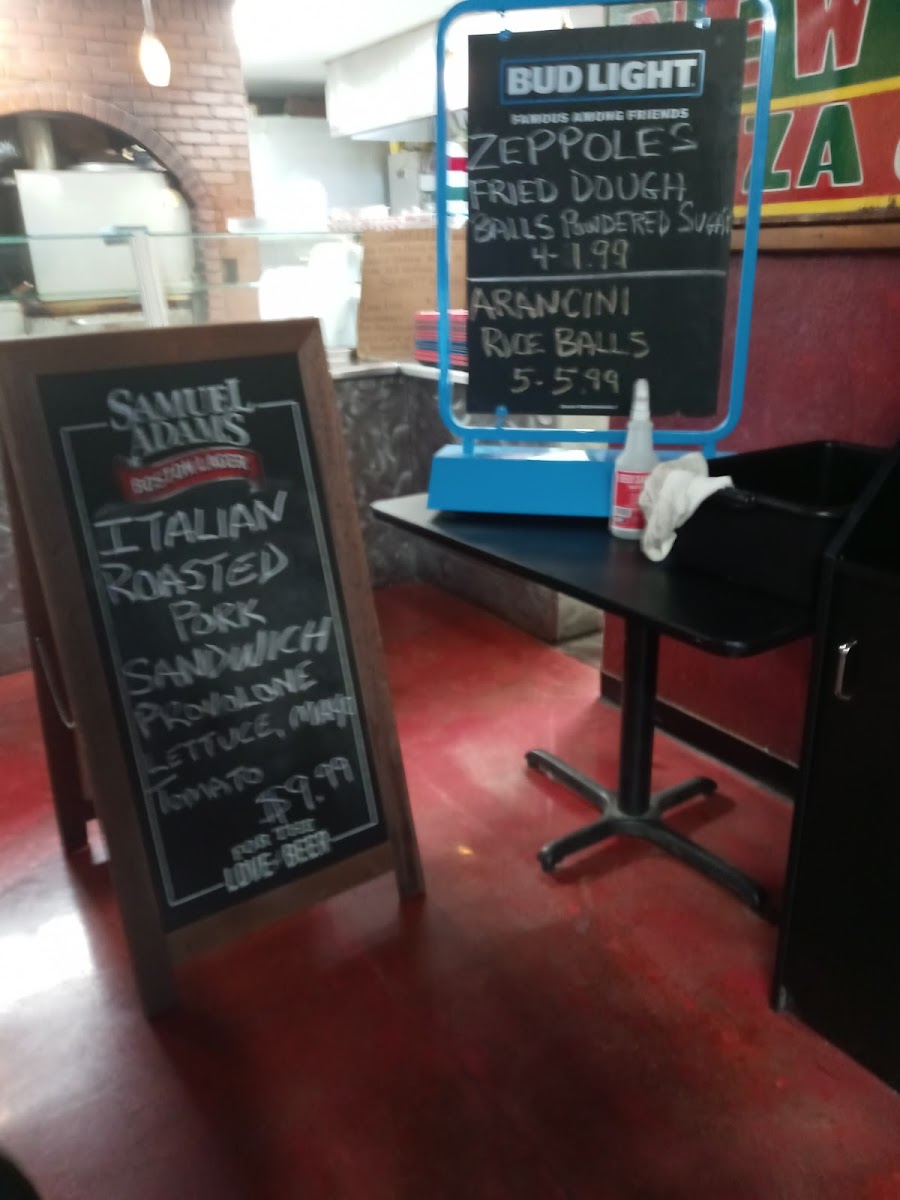 SAMUEL
ADAMS
BOSTON LAGER
ITALIAN
ROASTED
PORK
SANDWICH
PROVOLONE
LETTUCE, MAYO
TOMATO
$9.99
FOR THE
LOVE OF BEER
BUD LIGHT
FAMOUS AMONG FRIENDS
ZEPPOLES
FRIED DOUGH
BALLS POWDERED SUGAR
4- 1.99
ARANCINI
RICE BALLS
5- 5.99
EW
ZA